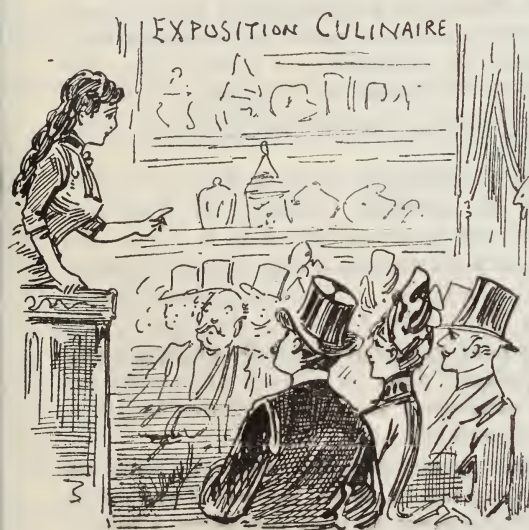 EXPOSITION CULINAIRE